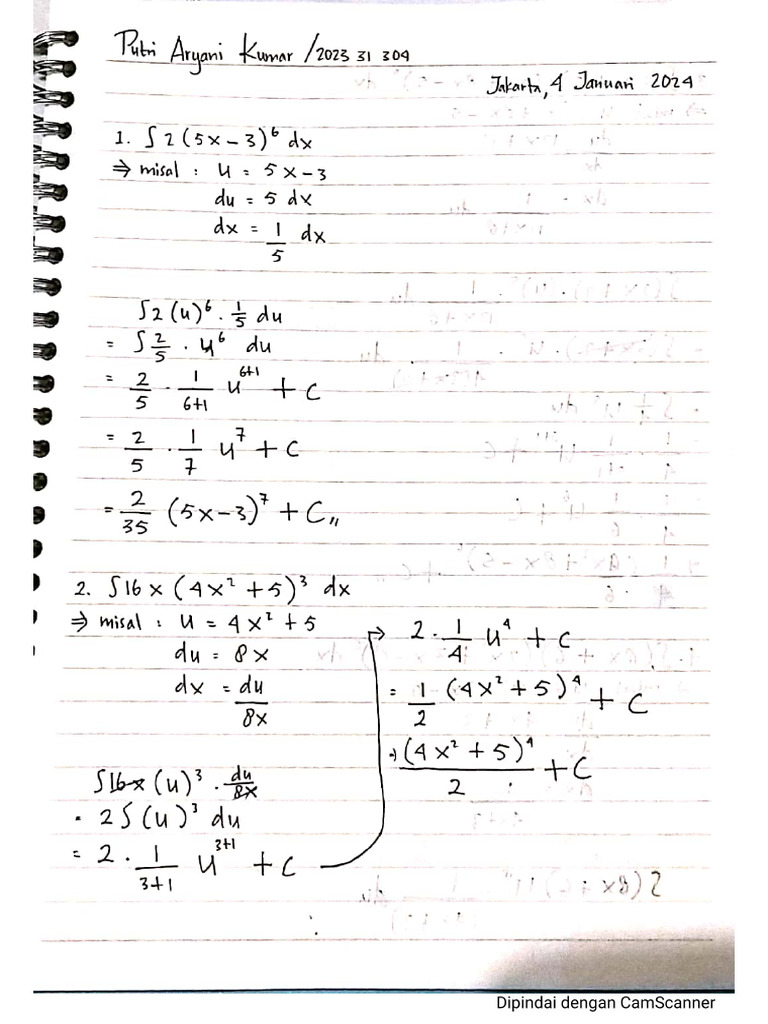 Putri Aryani Kumar / 2023 31 304
Jakarta, 4 Januari 2024
1. ∫ 2 (5x – 3)⁶ dx
⇒ misal : u = 5x – 3
du = 5 dx
dx = 1/5 dx
∫ 2 (u)⁶ . 1/5 du
= ∫ 2/5 . u⁶ du
= 2/5 . 1/(6+1) u⁶⁺¹ + C
= 2/5 . 1/7 u⁷ + C
= 2/35 (5x – 3)⁷ + C,,
2. ∫ 16 x (4x² + 5)³ dx
⇒ misal : u = 4x² + 5
du = 8x
dx = du/8x
∫ 16x (u)³ . du/8x
= 2 ∫ (u)³ du
= 2 . 1/(3+1) u³⁺¹ + C
→ 2 . 1/4 u⁴ + C
= 1/2 (4x² + 5)⁴ + C
= (4x² + 5)⁴/2 + C
Dipindai dengan CamScanner